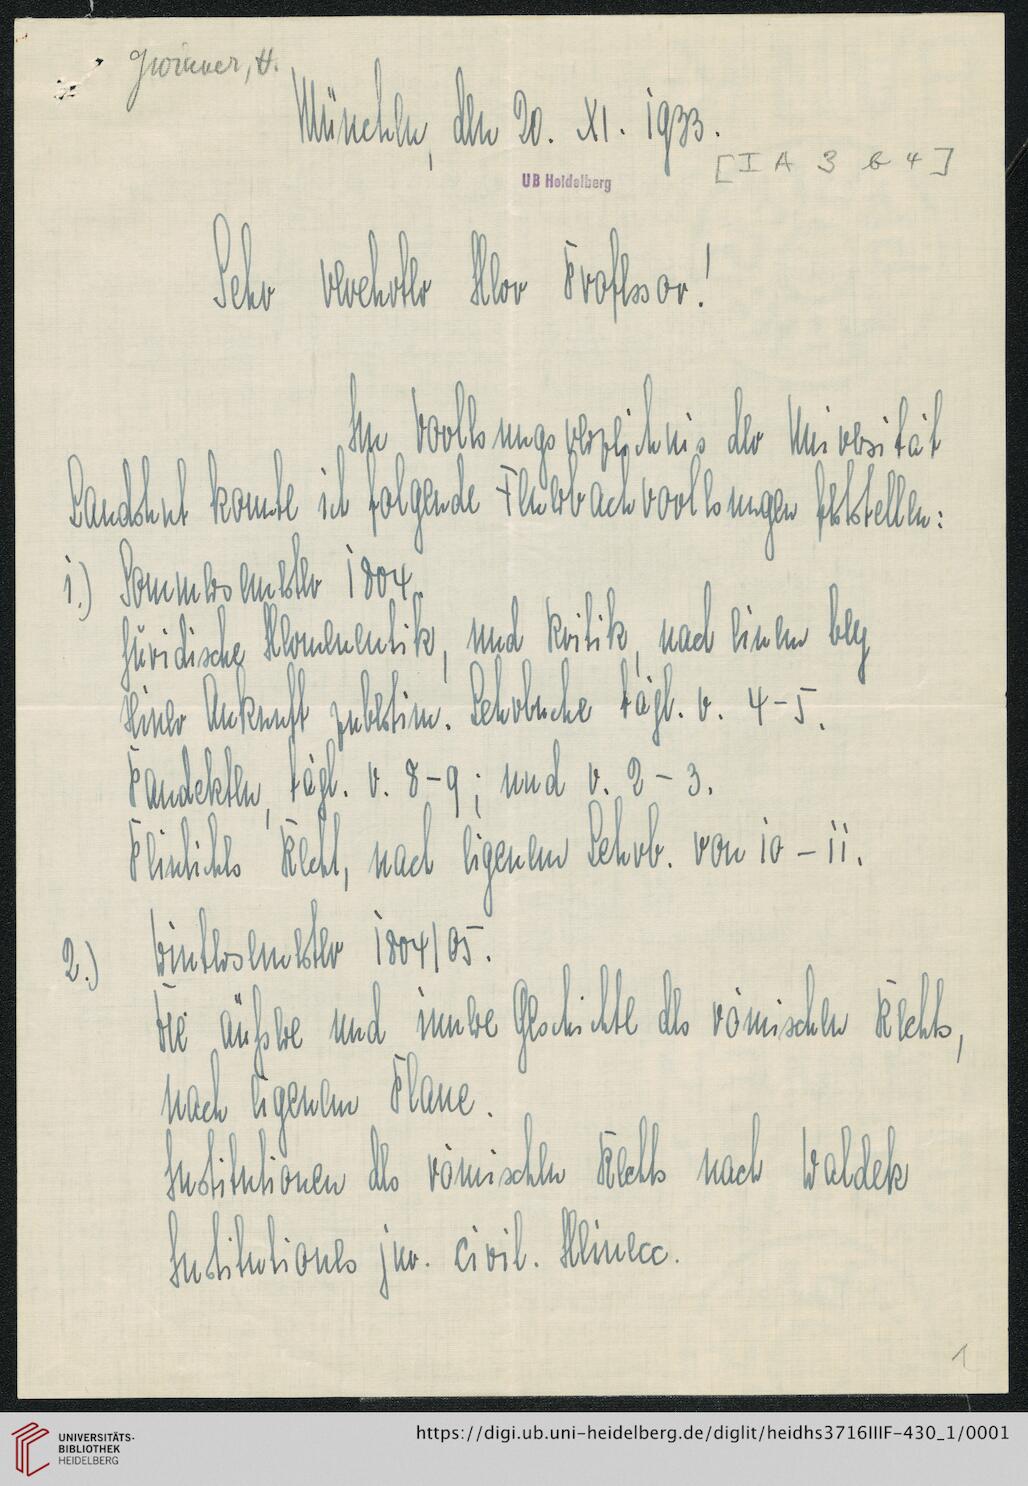 Gwinner, H.
München, den 20. XI. 1933.
[I A 3 b 4]
UB Heidelberg
Sehr verehrter Herr Professor!
Im Vorlesungsverzeichnis der Universität
Landshut konnte ich folgende Feuerbachvorlesungen feststellen:
1.) Sommersemester 1804.
Juridische Hermeneutik, und Kritik, nach einem bey
seiner Ankunft zu bestim. Lehrbuche tägl. v. 4-5.
Pandekten, tägl. v. 8-9; und v. 2-3.
Peinliches Recht, nach eigenem Lehrb. von 10-11.
2.) Wintersemester 1804/05.
Die äußere und innere Geschichte des römischen Rechts,
nach eigenem Plane.
Institutionen des römischen Rechts nach Waldek
Institutiones jur. civil. Heinecc.
1
UNIVERSITÄTS-
BIBLIOTHEK
HEIDELBERG
https://digi.ub.uni-heidelberg.de/diglit/heidhs3716IIIF-430_1/0001